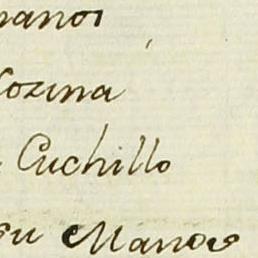 manos
Cozina
Cuchillo
su Manos